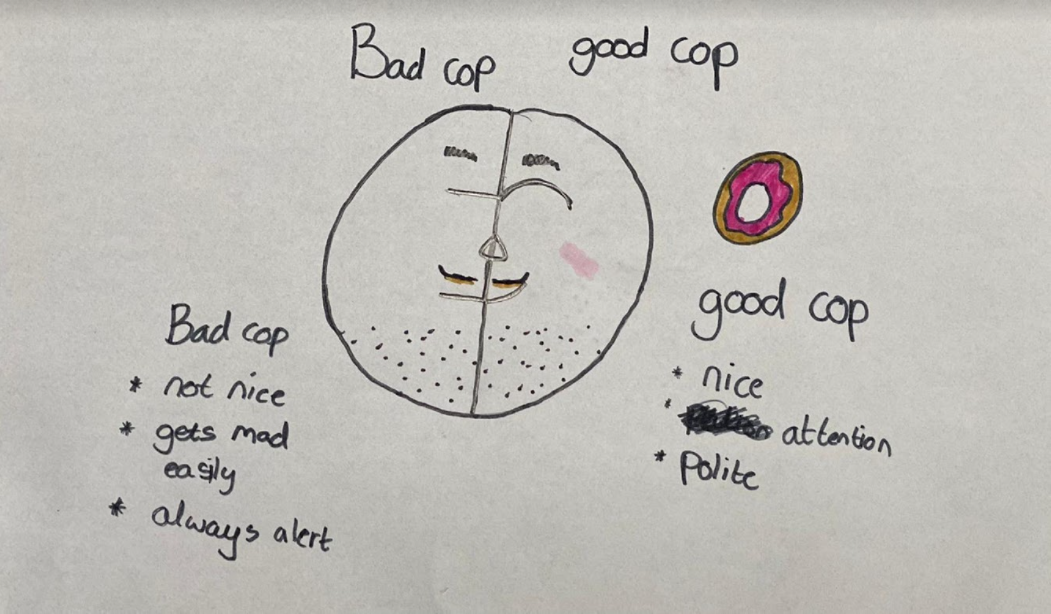 Bad cop
good cop
Bad cop
* not nice
* gets mad
easily
* always alert
good cop
* nice
* attention
* Polite